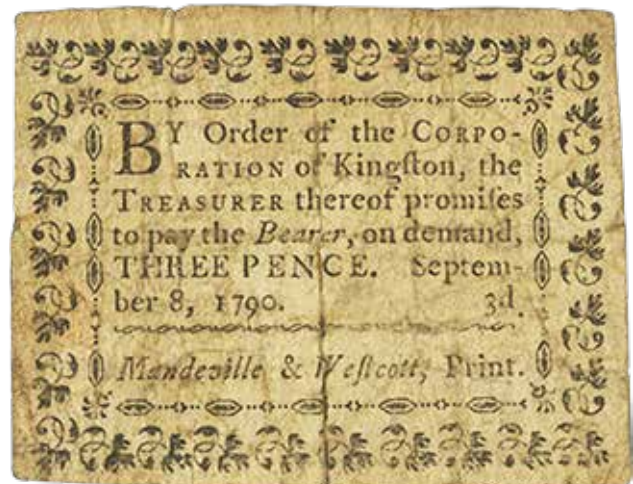 BY Order of the CORPO-
RATION of Kingſton, the
TREASURER thereof promiſes
to pay the Bearer, on demand,
THREE PENCE. Septem-
ber 8, 1790. 3d.
Mandeville & Weſtcott, Print.